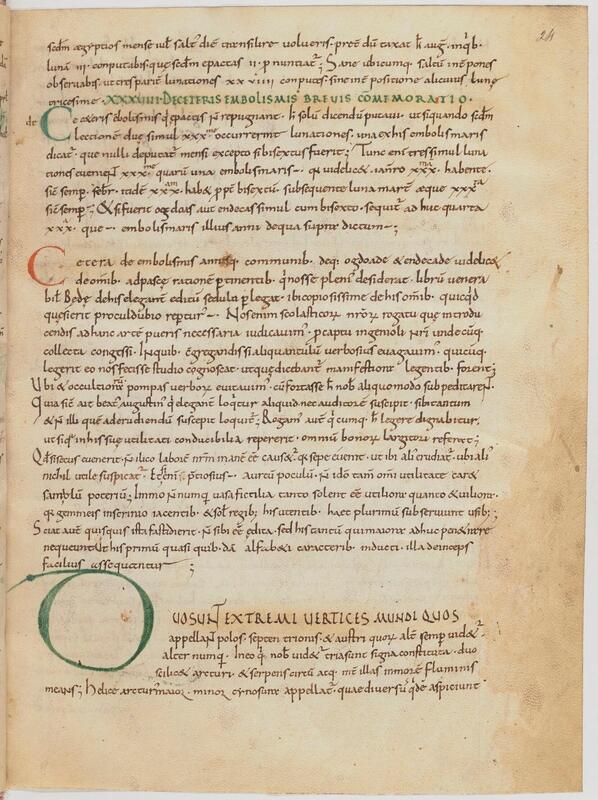 24
secdm aegyptios mense iul salt' die transilire volueris. preter dū taxat k̄ aug. inq̄ b.
luna iii. conputabis quę secdm epactas ii. p nuntiat̄; Sane ubicumq. saltū inē pones
observabis. ut tres parit̄ lunationes xxviiii conputes. sine int̄ positione alicuius lunę
tricesime. XXXVIIII. DE CETERIS EMBOLISMIS BREVIS COMEMORATIO.
de
Ce ceteris ebolismis q̄ epactis n̄ repugnant. k̄ solū dicendū putavi. ut si quando secdm
lectionē duę simul xxx me occurrerint lunationes. una ex his embolismaris
dicat̄. que nulli deputat̄ mensi excepto si bisextus fuerit; Tunc eni tres simul luna
tiones eveniunt xxx me quarū una embolismaris. quę videlicet ianr̄o xxx ma habente.
siē semp. febr̄. itidē xxx am habet ppt̄ bisextū. subsequente luna mart̄. aeque xxx a
siē semp; & si fuerit ogdoas aut endecas simul cum bisexto. sequit̄ ad huc quarta
xxx. que embolismaris illius anni de qua supra dictum;
Cetera de embolismis annisq. communib. deq. ogdoade & endecade videlicet
de omīb. ad paschę rationē ptinentib. q̄ nosse pleni' desiderat. librū venera
bil' Bedę de his elegant̄ editū sedula p legat. ibi copiosissime de his omib. quicq̄d
quesierit procul dubio repiet̄. Nos enim scolasticorū nr̄orū rogatu quę introdu
cendis ad hanc artē pueris necessaria iudicavim'. p captu ingenioli nr̄i undecūq.
collecta congessi. In quib. & gregandis si aliquantulū verbosius evagavim'. quicūq.
legerit eo nos fecisse studio cognoscat. ut quę dicebant̄ manifestiora legentib. forent;
Ubi & occultiores pompas verborū evitavim'. cū fortasse k̄ nob̄ aliquomodo subpeditaren̄t.
Quia siē ait beat' augustin' q̄ eleganter loqt̄ur aliquid nec auditore suscipit. sibi tantum
& n̄ illi quē ad erudiendū suscepit loquit̄; Rogam' aut̄ q̄cumq. k̄ legere dignabit̄ur,
ut siq̄ in his suę utilitati conducibilia repererit. omniū bonorū largitori referat;
Qd̄ si secus evenerit. n̄ ilico laborē nr̄m inanē eē causet̄. q̄a sepe evenit. ut ibi ali' erudiat̄. ubi ali'
nichil utile suspicat̄. Etsi enī ptiosius. aureū poculū. n̄ idō tam̄ om̄i utilitate caret
samolū poterū; Immo n̄ numq. vasa fictilia tanto solent eē utiliora quanto & viliora.
q̄a gemmeis inserinio iacentib. & sol' regib; his utentib. haec plurimū subserviunt usib;
Sciat aut̄ quisquis ista fastidierit. n̄ sibi eē edita. sed his tantū qui maiora adhuc penetrare
nequeunt. ut his primū quasi quib. dā alfabeti caracterib. inducti. illa deinceps
facilius assequantur;
DUO SUNT EXTREMI VERTICES MUNDI QUOS
appellant polos. septentrionis. & austri quorū alt̄ semp videt̄.
alter numq. In eo q̄ nob̄ videt̄ tria sunt signa constituta. duo
scilicet arcturi. & serpens circū atq. inter illas in morē fluminis
means; Helice arcturus maior. minor cynosura appellat̄. quae diversū q̄de aspiciunt